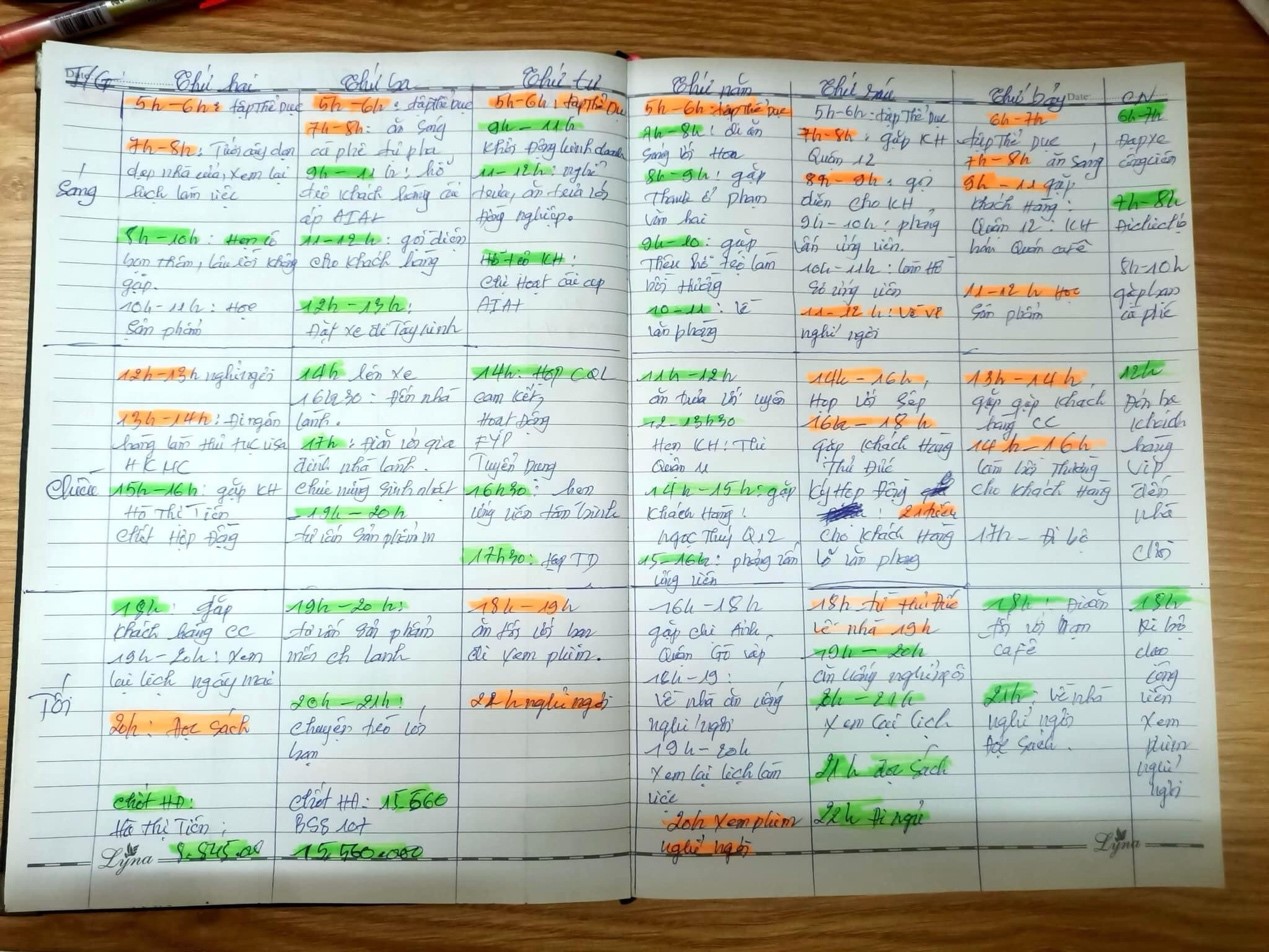 T/G
Thứ hai
Thứ ba
Thứ tư
Thứ năm
Thứ sáu
Thứ bảy
Date
CN
Sáng
5h-6h: tập Thể Dục
7h-8h: Tưới cây dọn
dẹp nhà cửa, xem lại
lịch làm việc
8h-10h: Hẹn cô
bạn thêm, lâu rồi không
gặp.
10h-11h: Học
Sản phẩm
5h-6h: tập Thể Dục
7h-8h: ăn Sáng
cà phê
9h-11h: hỗ
trợ khách hàng cài
áp AIA+
11-12h: gọi điện
cho khách hàng
12h-13h:
Đặt xe đi Tây ninh
5h-6h: tập Thể Dục
9h-11h
Khởi Động kinh doanh
11-12h: nghỉ
trưa, ăn trưa với
Đồng nghiệp.
Hỗ trợ KH:
Chị Hoạt cài app
AIA+
5h-6h: tập Thể Dục
7h-8h: đi ăn
Sáng với
8h-9h: gặp
Thanh ở Phạm
Văn hai
9h-10: gặp
hỗ trợ làm
bồi thường
10-11: Về
văn phòng
5h-6h: tập Thể Dục
7h-8h: gặp KH
Quận 12
8h-9h: gọi
điện cho KH
9h-10h: phỏng
vấn ứng viên.
10h-11h: làm Hồ
Sơ ứng viên
11-12h: Về VP
nghỉ ngơi
6h-7h
tập Thể Dục
7h-8h ăn sáng
9h-11 gặp
khách Hàng:
Quận 12: KH
bán Quán cafê
11-12h Học
Sản phẩm
6h-7h
Đạp xe
công viên
7h-8h
Đi chợ
8h-10h
gặp bạn
cà phê
Chiều
12h-13h nghỉ ngơi
13h-14h: Đi ngân
hàng làm thủ tục visa
15h-16h: gặp KH
Hà Thị Tiên
chốt Hợp Đồng
14h lên xe
16h30: Đến nhà
lành.
17h: Đến với gia
đình nhà lành.
Chúc mừng Sinh nhật
19h-20h
tư vấn Sản phẩm
14h: Họp CQL
Cam Kết
Hoạt Động
FYP
Tuyển Dụng
16h30: hẹn
ứng viên tân bình
17h30: họp TD
11h-12h
ăn trưa với uyên
12-13h30
Hẹn KH: Thi
Quận 11
14h-15h: gặp
Khách Hàng:
Ngọc Thúy Q12
15-16h: phỏng vấn
ứng viên
14h-16h,
Họp với Sếp
16h-18h
gặp Khách Hàng
Thủ Đức
Ký Hợp Đồng
21 triệu
cho Khách Hàng
về văn phòng
13h-14h,
gặp Khách
hàng CC
14h-16h
làm bồi Thường
cho Khách Hàng
17h- Đi bộ
12h
Đón
khách
hàng
VIP
đến
nhà
chơi
Tối
18h: gặp
khách hàng CC
19h-20h: Xem
lại lịch ngày mai
20h: Đọc sách
Chốt HĐ:
Hà Thị Tiên:
19h-20h:
tư vấn Sản phẩm
mới ch lành
20h-21h:
chuyện trò với
bạn
Chốt HĐ: 15.560
15.560.000
18h-19h
ăn tối với bạn
đi xem phim.
22h nghỉ ngơi
16h-18h
gặp chị Anh,
Quận Gò vấp
18h-19:
Về nhà ăn uống
nghỉ ngơi
19h-20h
Xem lại lịch làm
việc
20h xem phim
nghỉ ngơi
18h từ thủ Đức
về nhà 19h
19h-20h
ăn uống nghỉ ngơi
Xem lại lịch
21h đọc sách
22h Đi ngủ
18h: Đi ăn
tối với bạn
café
21h: về nhà
nghỉ ngơi
đọc sách.
18h
Đi bộ
dạo
công
viên
xem
phim
nghỉ
ngơi
Lyna
Lyna